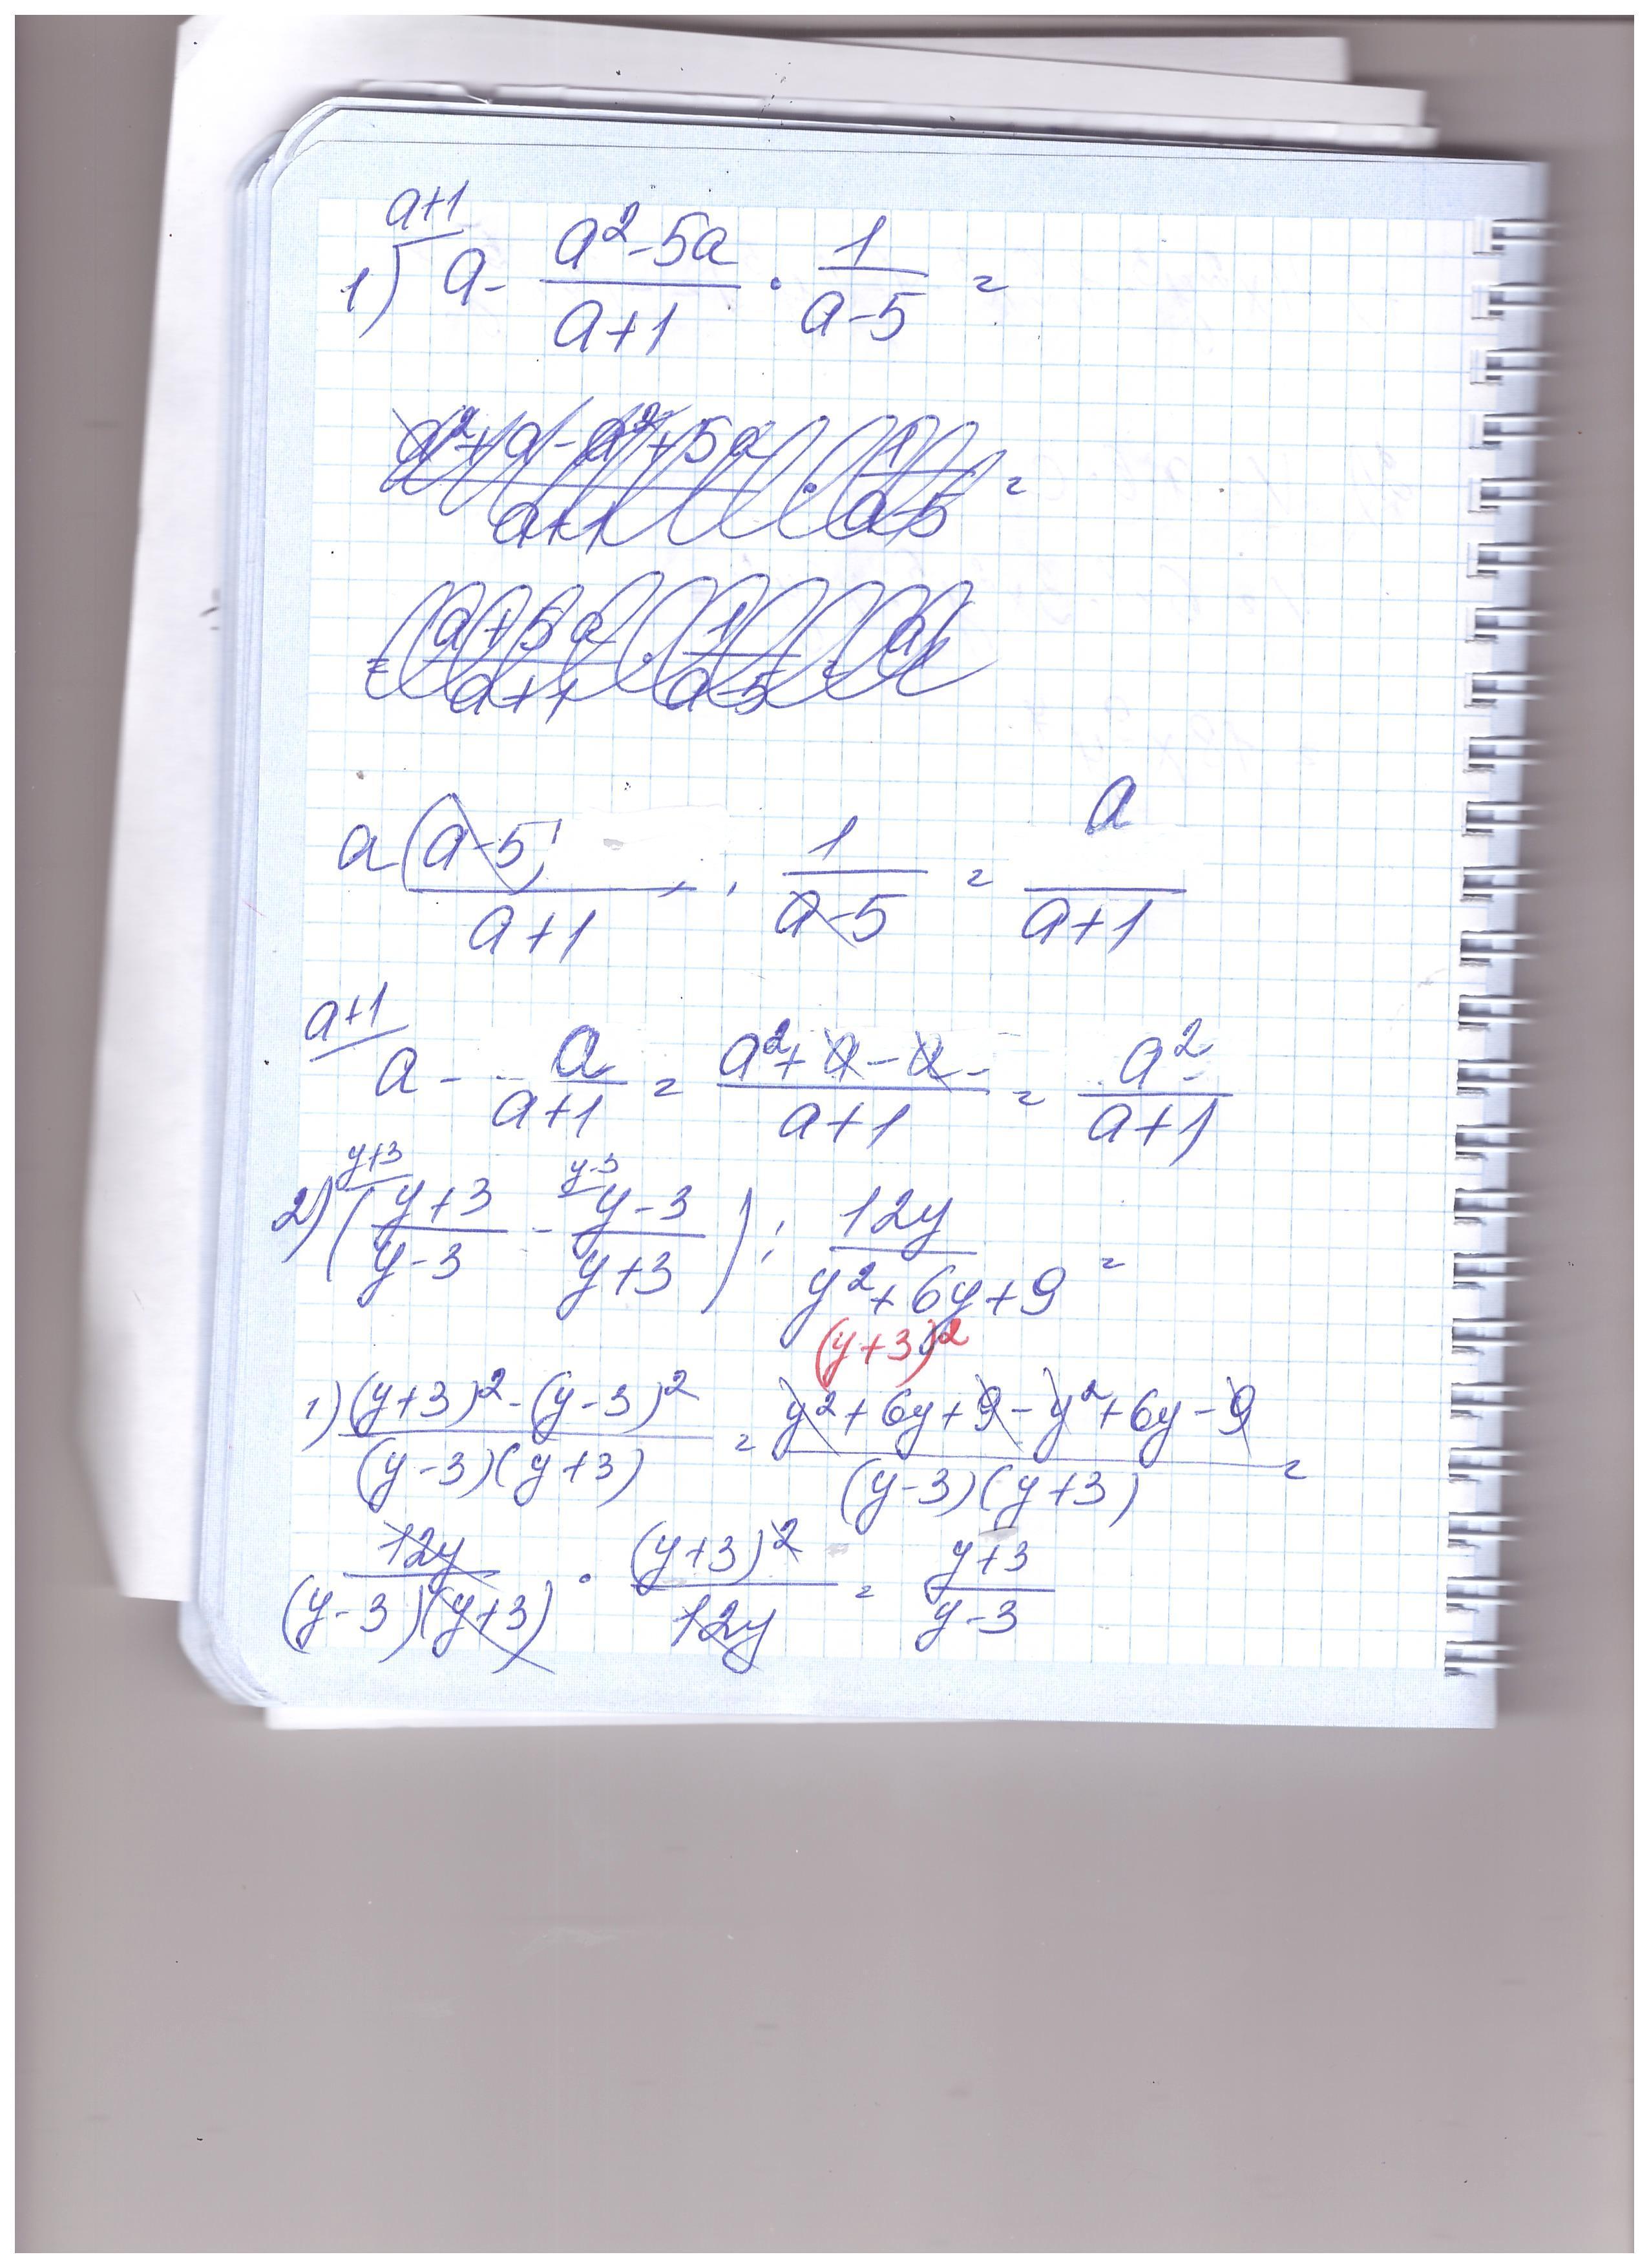 a+1
1) a - (a² - 5a)/(a+1) · 1/(a-5) =
(a² + a - a² + 5a)/(a+1) · 1/(a-5) =
= (a + 5a)/(a+1) · 1/(a-5) =
a(a-5)/(a+1) · 1/(a-5) = a/(a+1)
a+1
a - - a/(a+1) = (a² + a - a -)/(a+1) = a²/(a+1)
y+3 y-3
2) ((y+3)/(y-3) - (y-3)/(y+3)) : 12y/(y² + 6y + 9) =
(y+3)²
1) ((y+3)² - (y-3)²)/((y-3)(y+3)) = (y² + 6y + 9 - y² + 6y - 9)/((y-3)(y+3)) =
12y/((y-3)(y+3)) · (y+3)²/12y = (y+3)/(y-3)